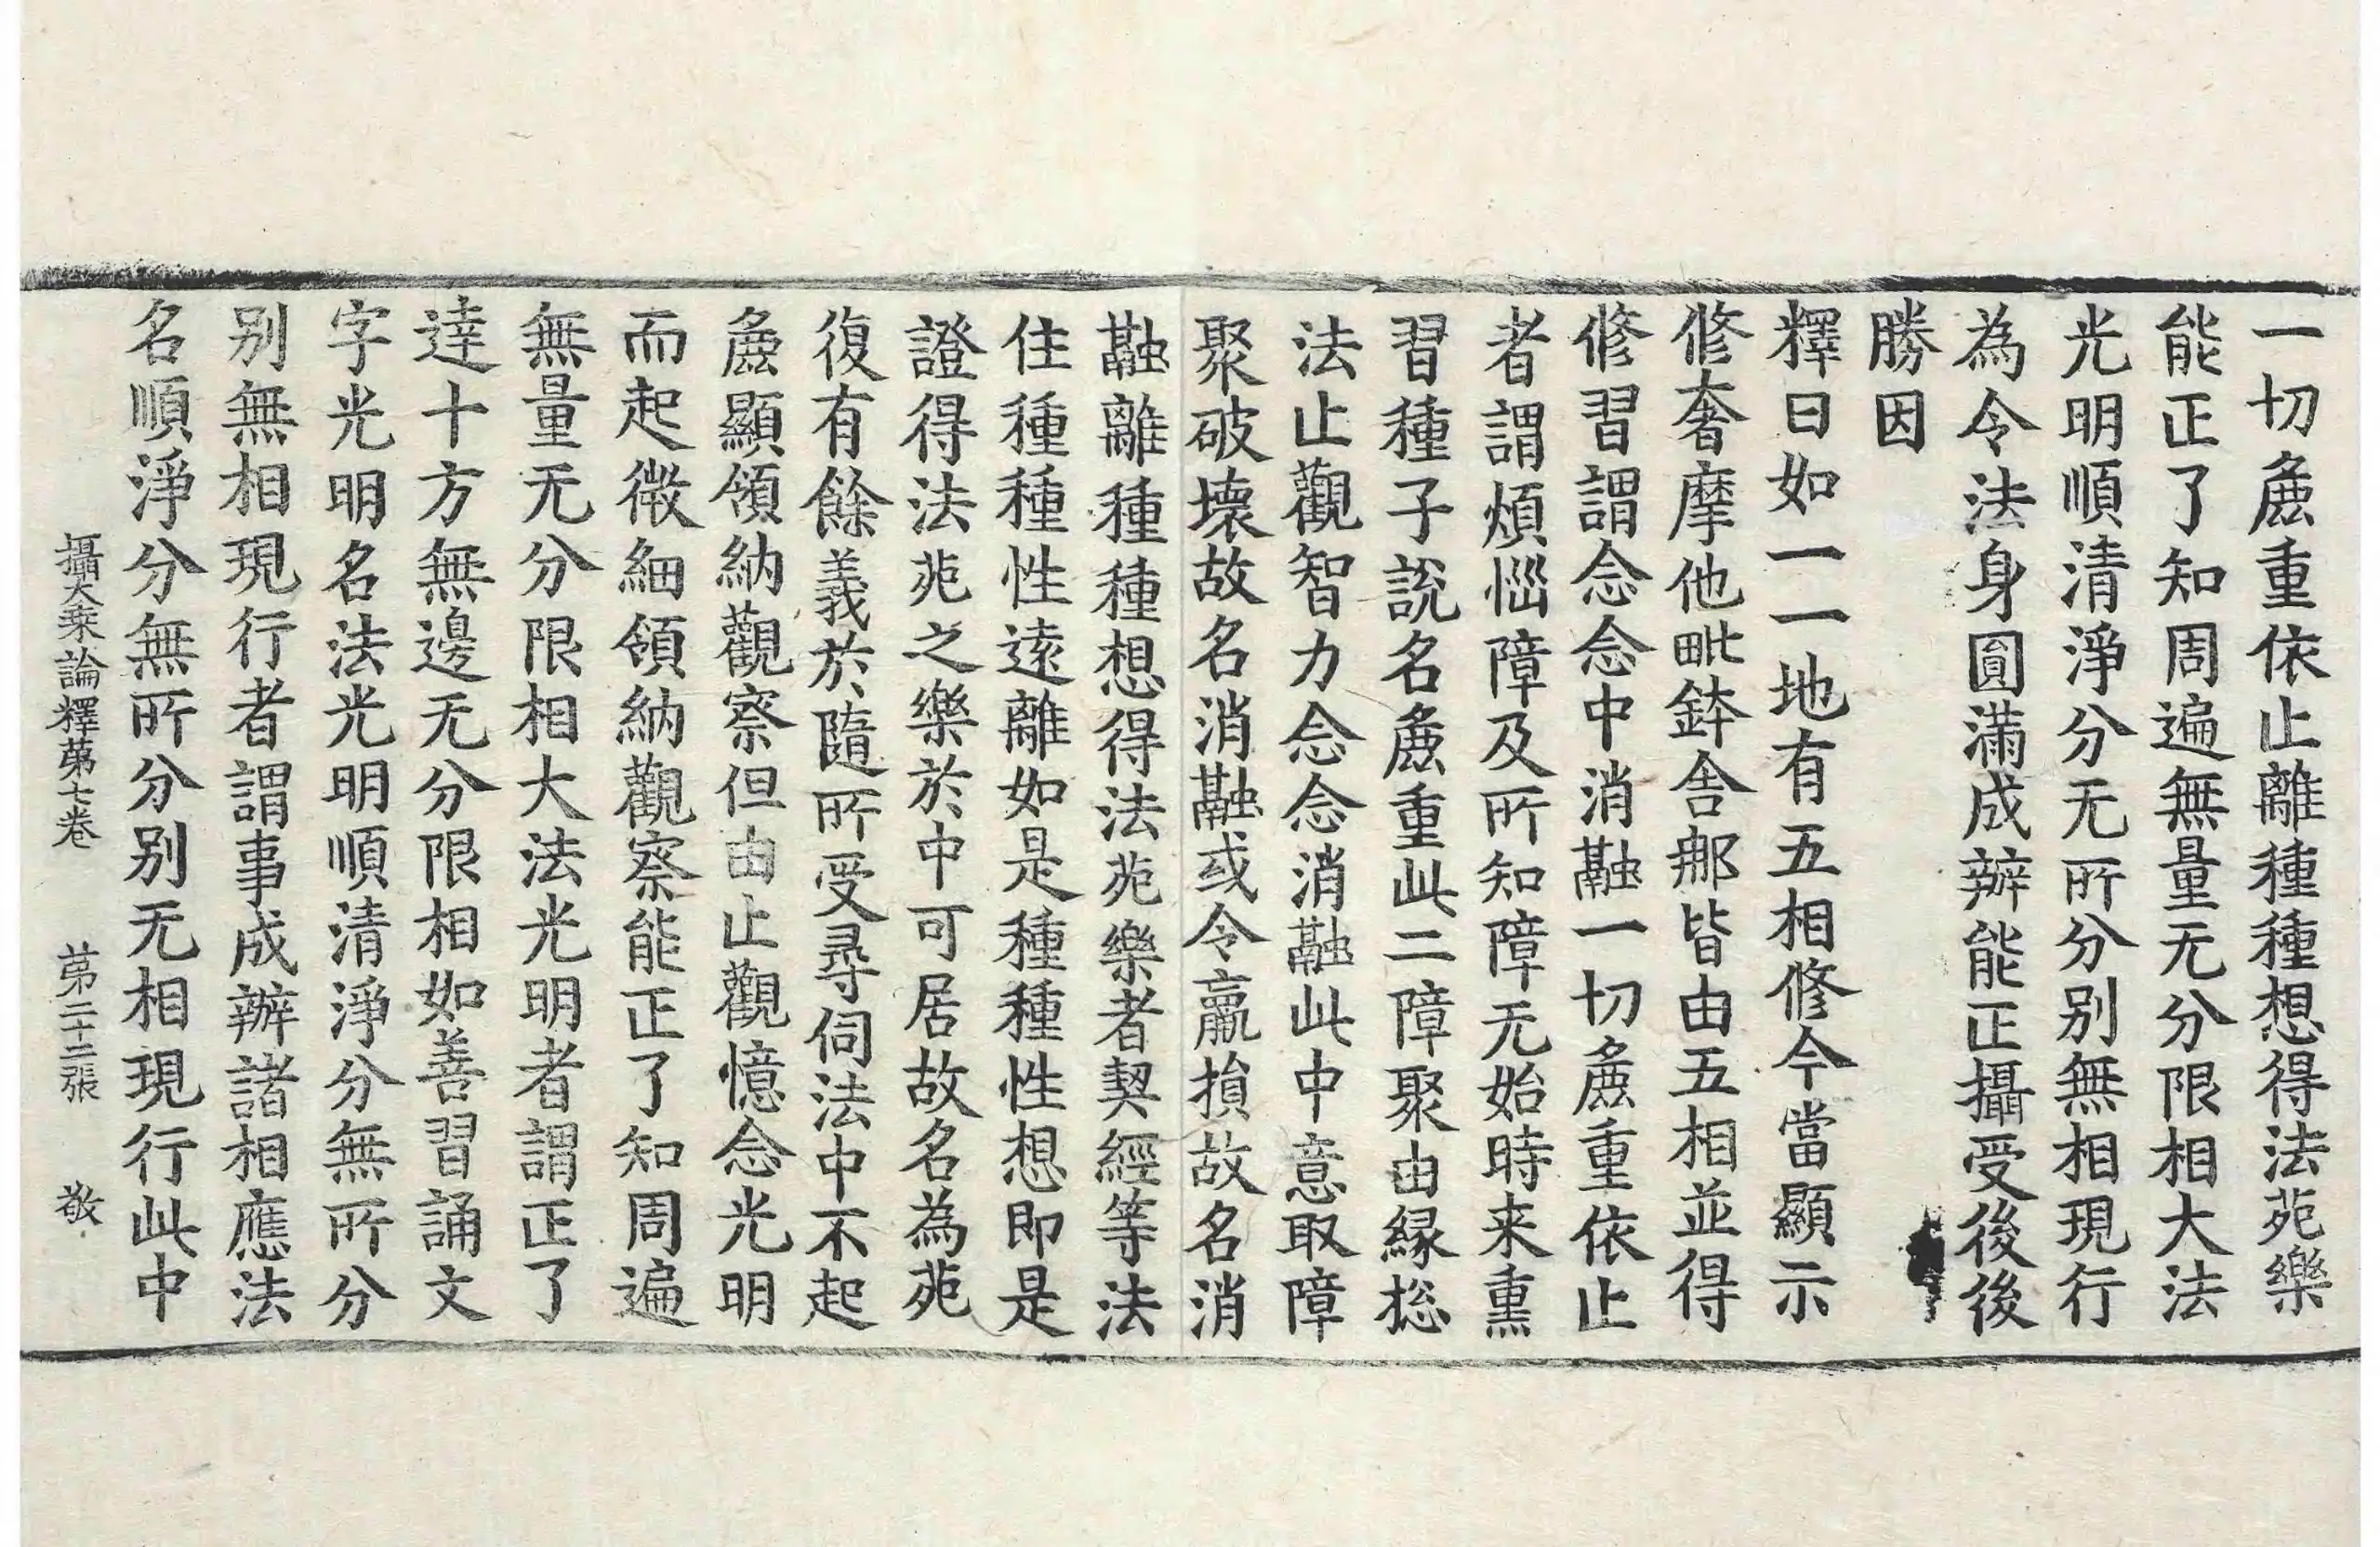 一切麁重依止離種種想得法苑樂
能正了知周遍無量无分限相大法
光明順清淨分无所分別無相現行
為令法身圓滿成辦能正攝受後後
勝因
釋曰如一一地有五相修今當顯示
修奢摩他毗鉢舍那皆由五相並得
修習謂念念中消融一切麁重依止
者謂煩惱障及所知障无始時来熏
習種子說名麁重此二障聚由緣捴
法止觀智力念念消融此中意取障
聚破壞故名消融或令羸損故名消
融離種種想得法苑樂者契經等法
住種種性遠離如是種種性想即是
證得法苑之樂於中可居故名為苑
復有餘義於隨所受尋伺法中不起
麁顯領納觀察但由止觀憶念光明
而起微細領納觀察能正了知周遍
無量无分限相大法光明者謂正了
達十方無邊无分限相如善習誦文
字光明名法光明順清淨分無所分
別無相現行者謂事成辦諸相應法
名順淨分無所分別无相現行此中
攝大乘論釋第七卷　第二十二張　敬